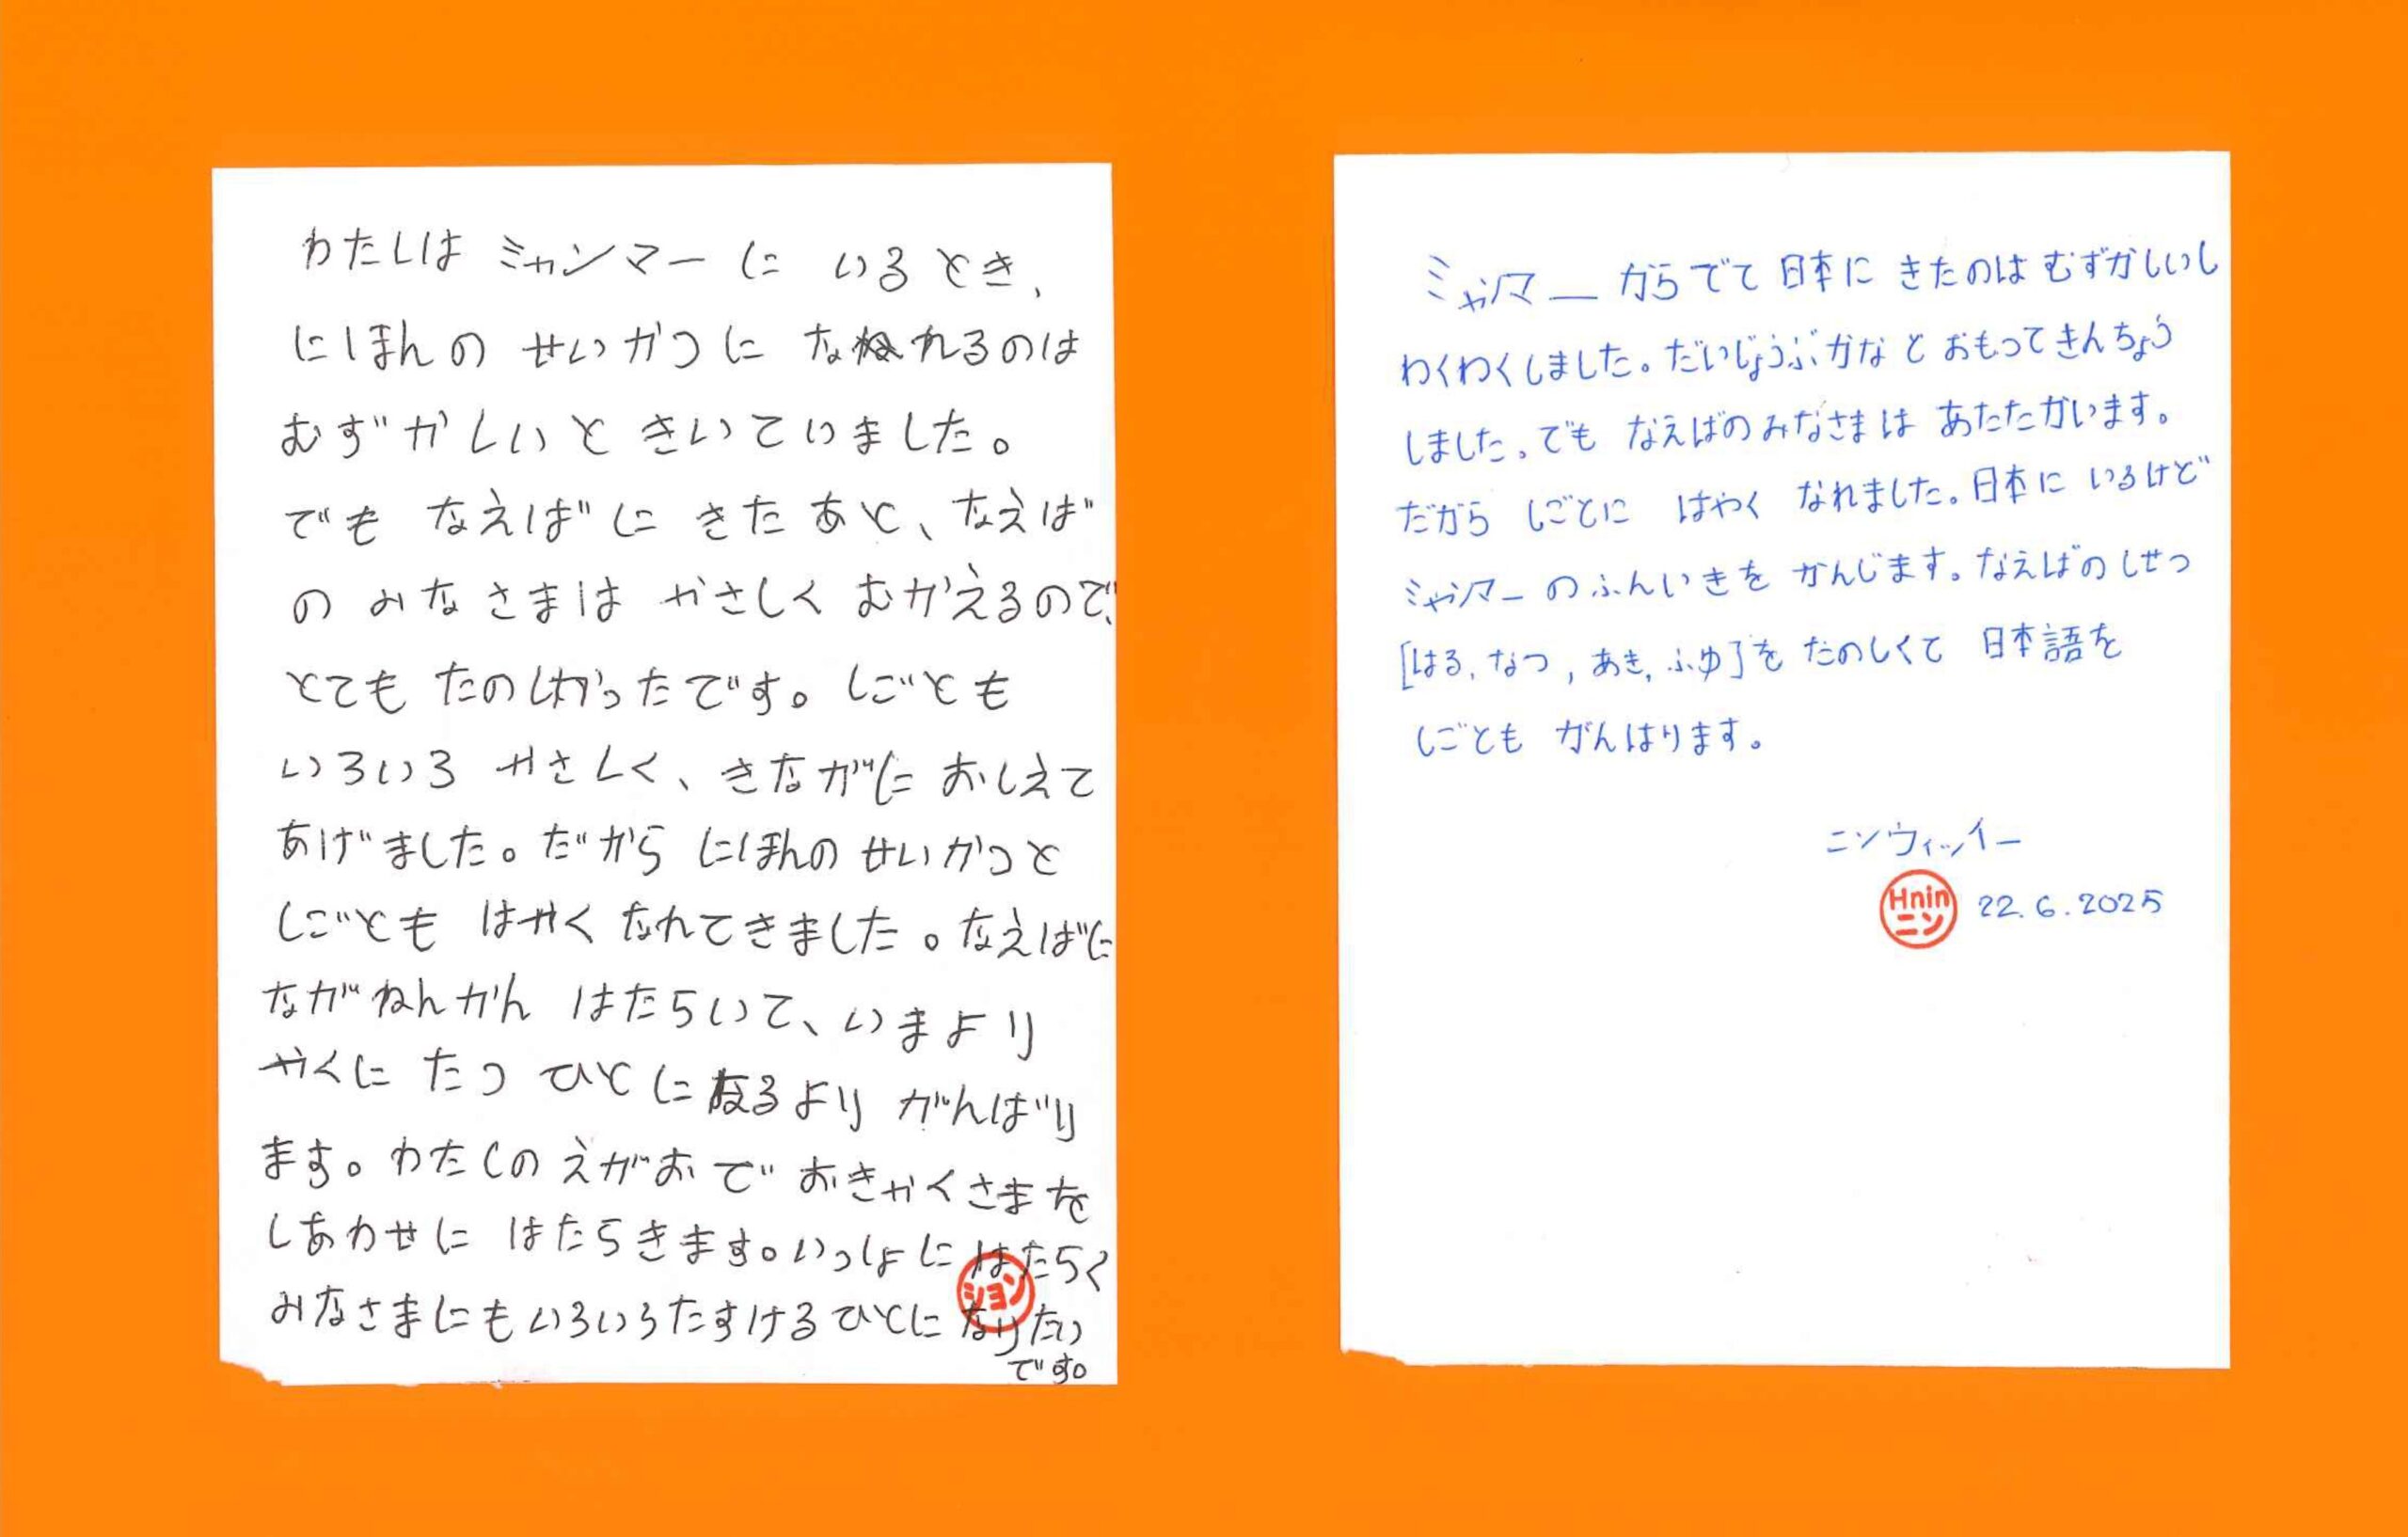 わたしは ミャンマーに いるとき、
にほんの せいかつに なれるのは
むずかしいと きいていました。
でも なえばに きたあと、なえば
の みなさまは やさしく むかえるので、
とても たのしかったです。しごとも
いろいろ やさしく、きながに おしえて
あげました。だから にほんの せいかつと
しごとも はやく なれてきました。なえばに
ながねんかん はたらいて、いまより
やくに たつ ひとに なるより がんばり
ます。わたしの えがおで おきゃくさまを
しあわせに はたらきます。いっしょに はたらく
みなさまにも いろいろ たすける ひとに なりたい
です。
ション
ミャンマー からでて 日本に きたのは むずかしいし
わくわくしました。だいじょうぶかな と おもって きんちょう
しました。でも なえばの みなさまは あたたかいます。
だから しごとに はやく なれました。日本に いるけど
ミャンマー の ふんいきを かんじます。なえばの しせつ
[はる, なつ, あき, ふゆ]を たのしくて 日本語を
しごとも がんはります。
ニンウィッイー
Hnin
ニン
22.6.2025